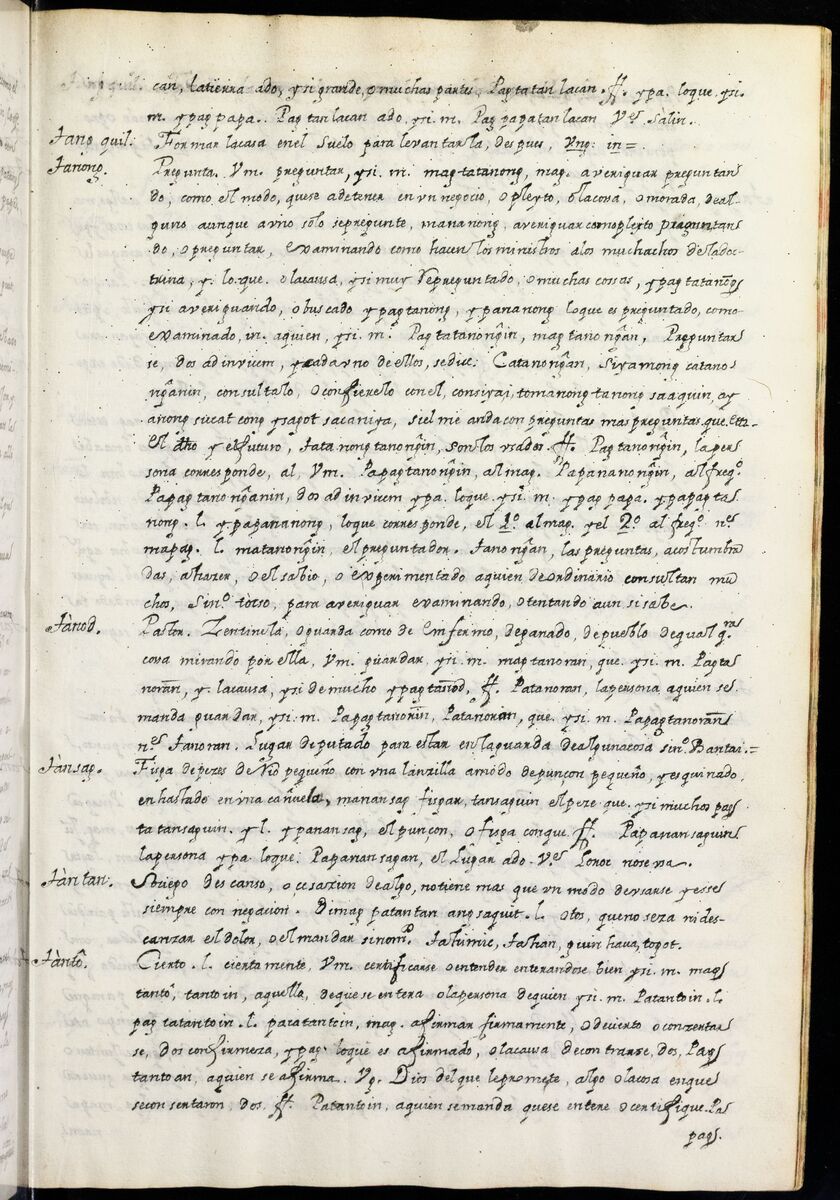 can, latierra ado, y si grande, o muchas partes, Pag tatan lacan. ff. ypa. loque. ysi.
m. ypag papa.. Pag tanlacan ado. ysi. m. Pag papatanlacan Vᵉ Sàlin.
Tang quil: Formar lacasa enel Suelo para levantarla, despues, Vng: in=.
Tanong. Pregunta. Vm. preguntar, ysi. m. mag-tatanong, mag. averiguar preguntan
do, como el modo, quese adetener en vn negocio, o pleyto, o lacosa, o morada, deal-
guno aunque avno sólo sepregunte, mananong, averiguar como pleyto preguntan
do, o preguntar, examinando como hacen los ministros alos muchachos dela doc-
trina, y. lo que. o lacausa, ysi muy repreguntado, o muchas cossas, ypag tatanong
ysi averiguando, o buscado ypag tanong, ypananong loque es preguntado, como
examinado, in. aquien, ysi. m. Pag tatanongin, mag tanongan, Preguntar
se, dos ad invicem, ycada vno de ellos, se dice: Catanongan, Siyamong catano
nganin, consultalo, o confierelo con el,
anong siccat cong ysagot sa caniya, si el me anda con preguntas mas preguntas que Etta-
El dho y el futuro, tatanong tanongin, son los vsados. ff. Pag tanongin, la per
sona corresponde, al, Vm. Papagtanongin, al mag. Papananongin, al freqº.
Papag tanonganin, dos ad invicem ypa. loque. ysi. m. ypag papa. ypapag ta
nong. l. ypapananong, loque corresponde, el 1º al mag. yel 2º al freqº. nᵉ
mapag. l. matanongin, el preguntador. Tanongan, las preguntas, acostumbra
das, ahazer, o el sabio, o experimentado aquien de ordinario consultan mu
chos, Sinº. tocso, para averiguar examinando, o tentando aun si sabe.
Tànod. Pastor. Zentinela, o guarda como de enfermo, deganado, de pueblo de qualqʳᵃ
cosa mirando por ella, Vm. guardar, ysi. m. mag tanoran, que. ysi. m. Pagta
noran, y. la causa, ysi de mucho ypag tanod, ff. Patanoran, la persona aquien se
manda guardar, ysi. m. Papag tanorin, Patanoran, que. ysi. m. Papagtanoran
nᵉ Tanoran. Lugar deputado para estar en la guarda de alguna cosa sinº. Bantai.=
Tànsag. Fisga de pezes de Rio pequeño con vna lanzilla amodo de punçon pequeño, y esquinado,
enhastado en vna cañuela, manansag fisgar, tansaguin el peze que. ysi muchos pag
ta tansaguin. y l. ypanansag, el punçon, o fisga conque. ff. Papanansaguin
la persona ypa. loque. Papanansagan, el Lugar ado. Vᵉ
Tàntan: Sosiego descanso, o cesasion de algo, no tiene mas que vn modo de vsarse y esse
siempre con negacion. Di mag patantan ang saquit. l. otos, que no seza ni des-
canzar el dolor, o el mandar sinom°. Tahimic, Tahan, guinhava, togot.
Tànto. Cierto. l. ciertamente, Vm. certificarse o entender enterandose bien ysi. m. mag
tanto, tantoin, aquello, de que se entera o la persona de quien ysi. m. Patantoin. l.
pag tatantoin. l. pacatantoin, mag. afirmar firmemente, o de cierto o conzertar
se, dos con firmeza, ypag. loque es afirmado, o la causa de contrarse, dos, Pag
tantoan, aquien se afirma. Vg. Dios del que le promete, algo o la cosa en que
se consertaron, dos. ff. Patantoin, aquien se manda que se entere o certifique. Pa
pag.